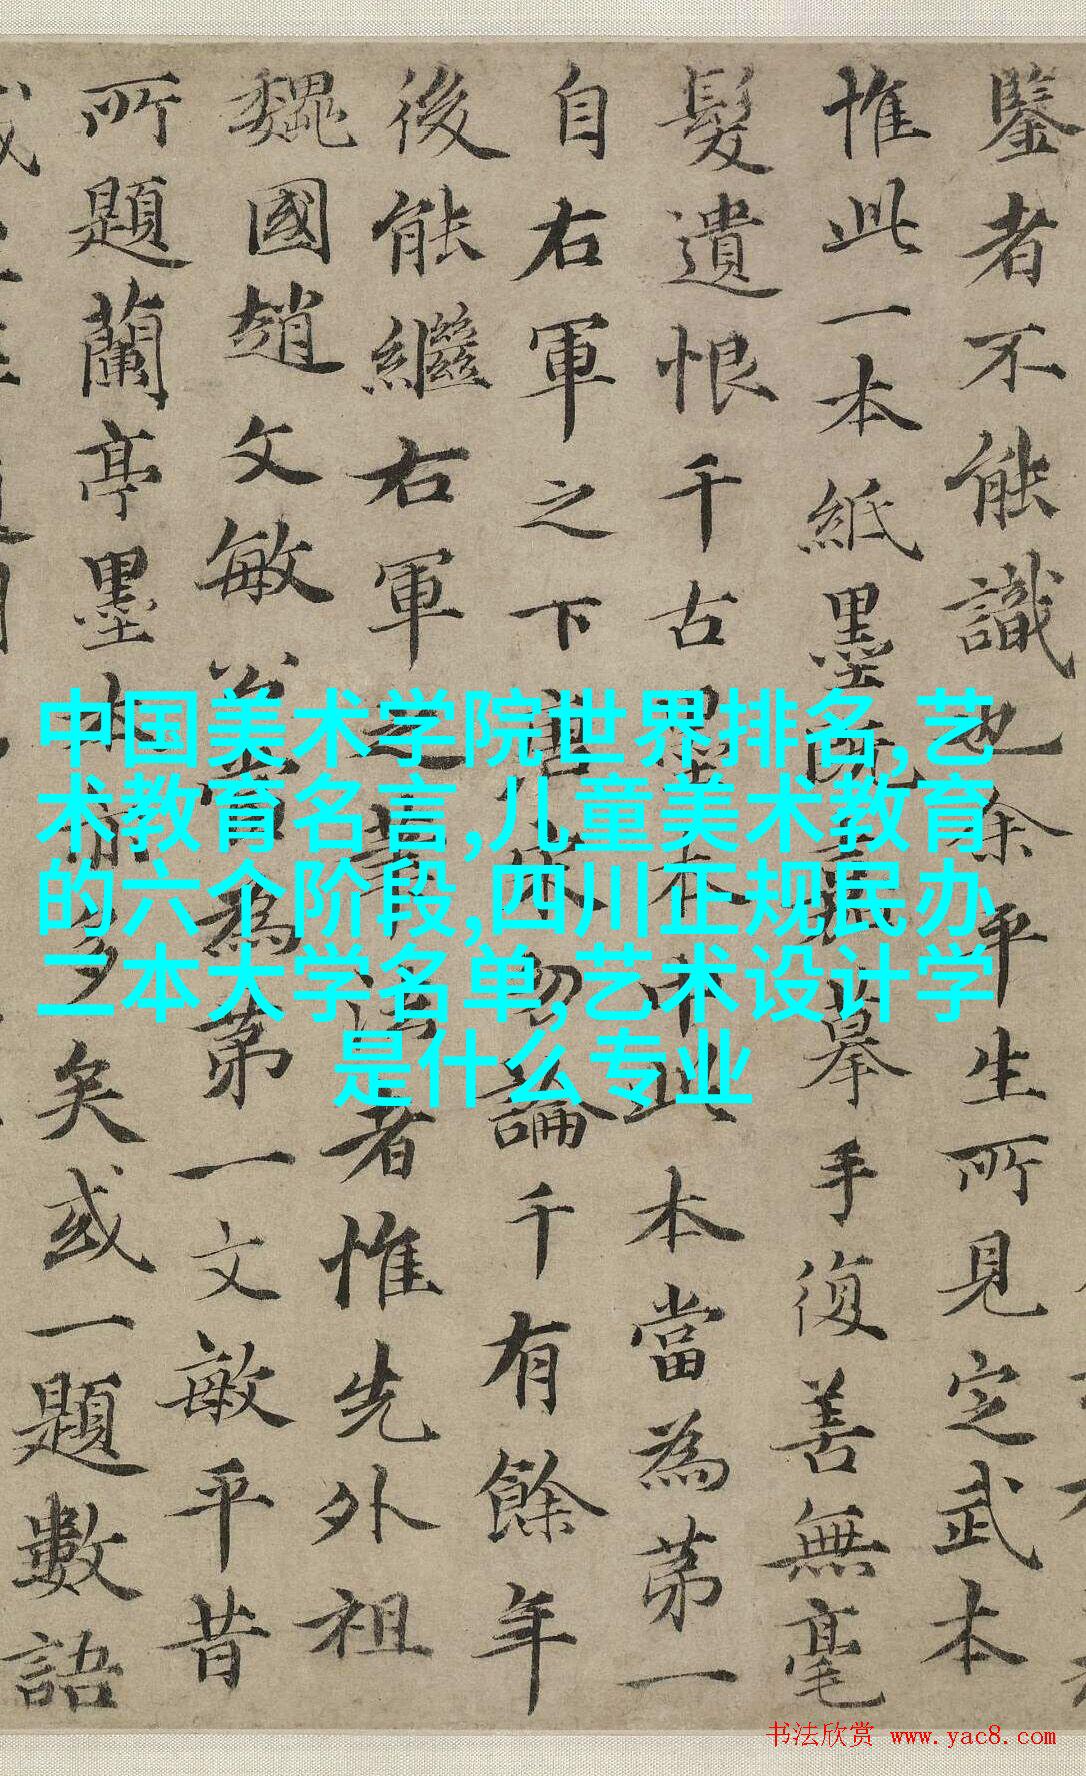 鑒者不能識也余平生所見定武本
惟此一本紙墨既摹手復善無毫
髮遺恨千古墨本中此本當為第一
自右軍之下唐論千有餘年
後能繼右軍之筆法者惟先外祖
魏國趙文敏公當為第一文敏平昔
所題蘭亭墨本亦多矣或一題數語
中国美术学院世界排名,艺
术教育名言,儿童美术教育
的六个阶段,四川正规民办
二本大学名单,艺术设计学
是什么专业
书法欣赏 www.yac8.com